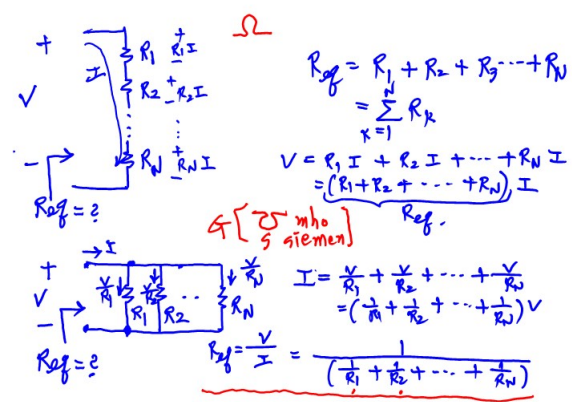 Ω
+
V
−
I
R1 + R1 I −
R2 + R2 I −
⋮
RN + RN I −
Req = ?
Req = R1 + R2 + R3 ··· + RN
= ∑ Rk
N
k=1
V = R1 I + R2 I + ··· + RN I
= (R1 + R2 + ··· + RN) I
Req.
G [ ℧ mho
S siemen ]
→ I
+
V
−
V/R1 ↓ R1
V/R2 ↓ R2
···
↓ V/RN RN
Req = ?
I = V/R1 + V/R2 + ··· + V/RN
= (1/R1 + 1/R2 + ··· + 1/RN) V
Req = V/I = 1/(1/R1 + 1/R2 + ··· + 1/RN)